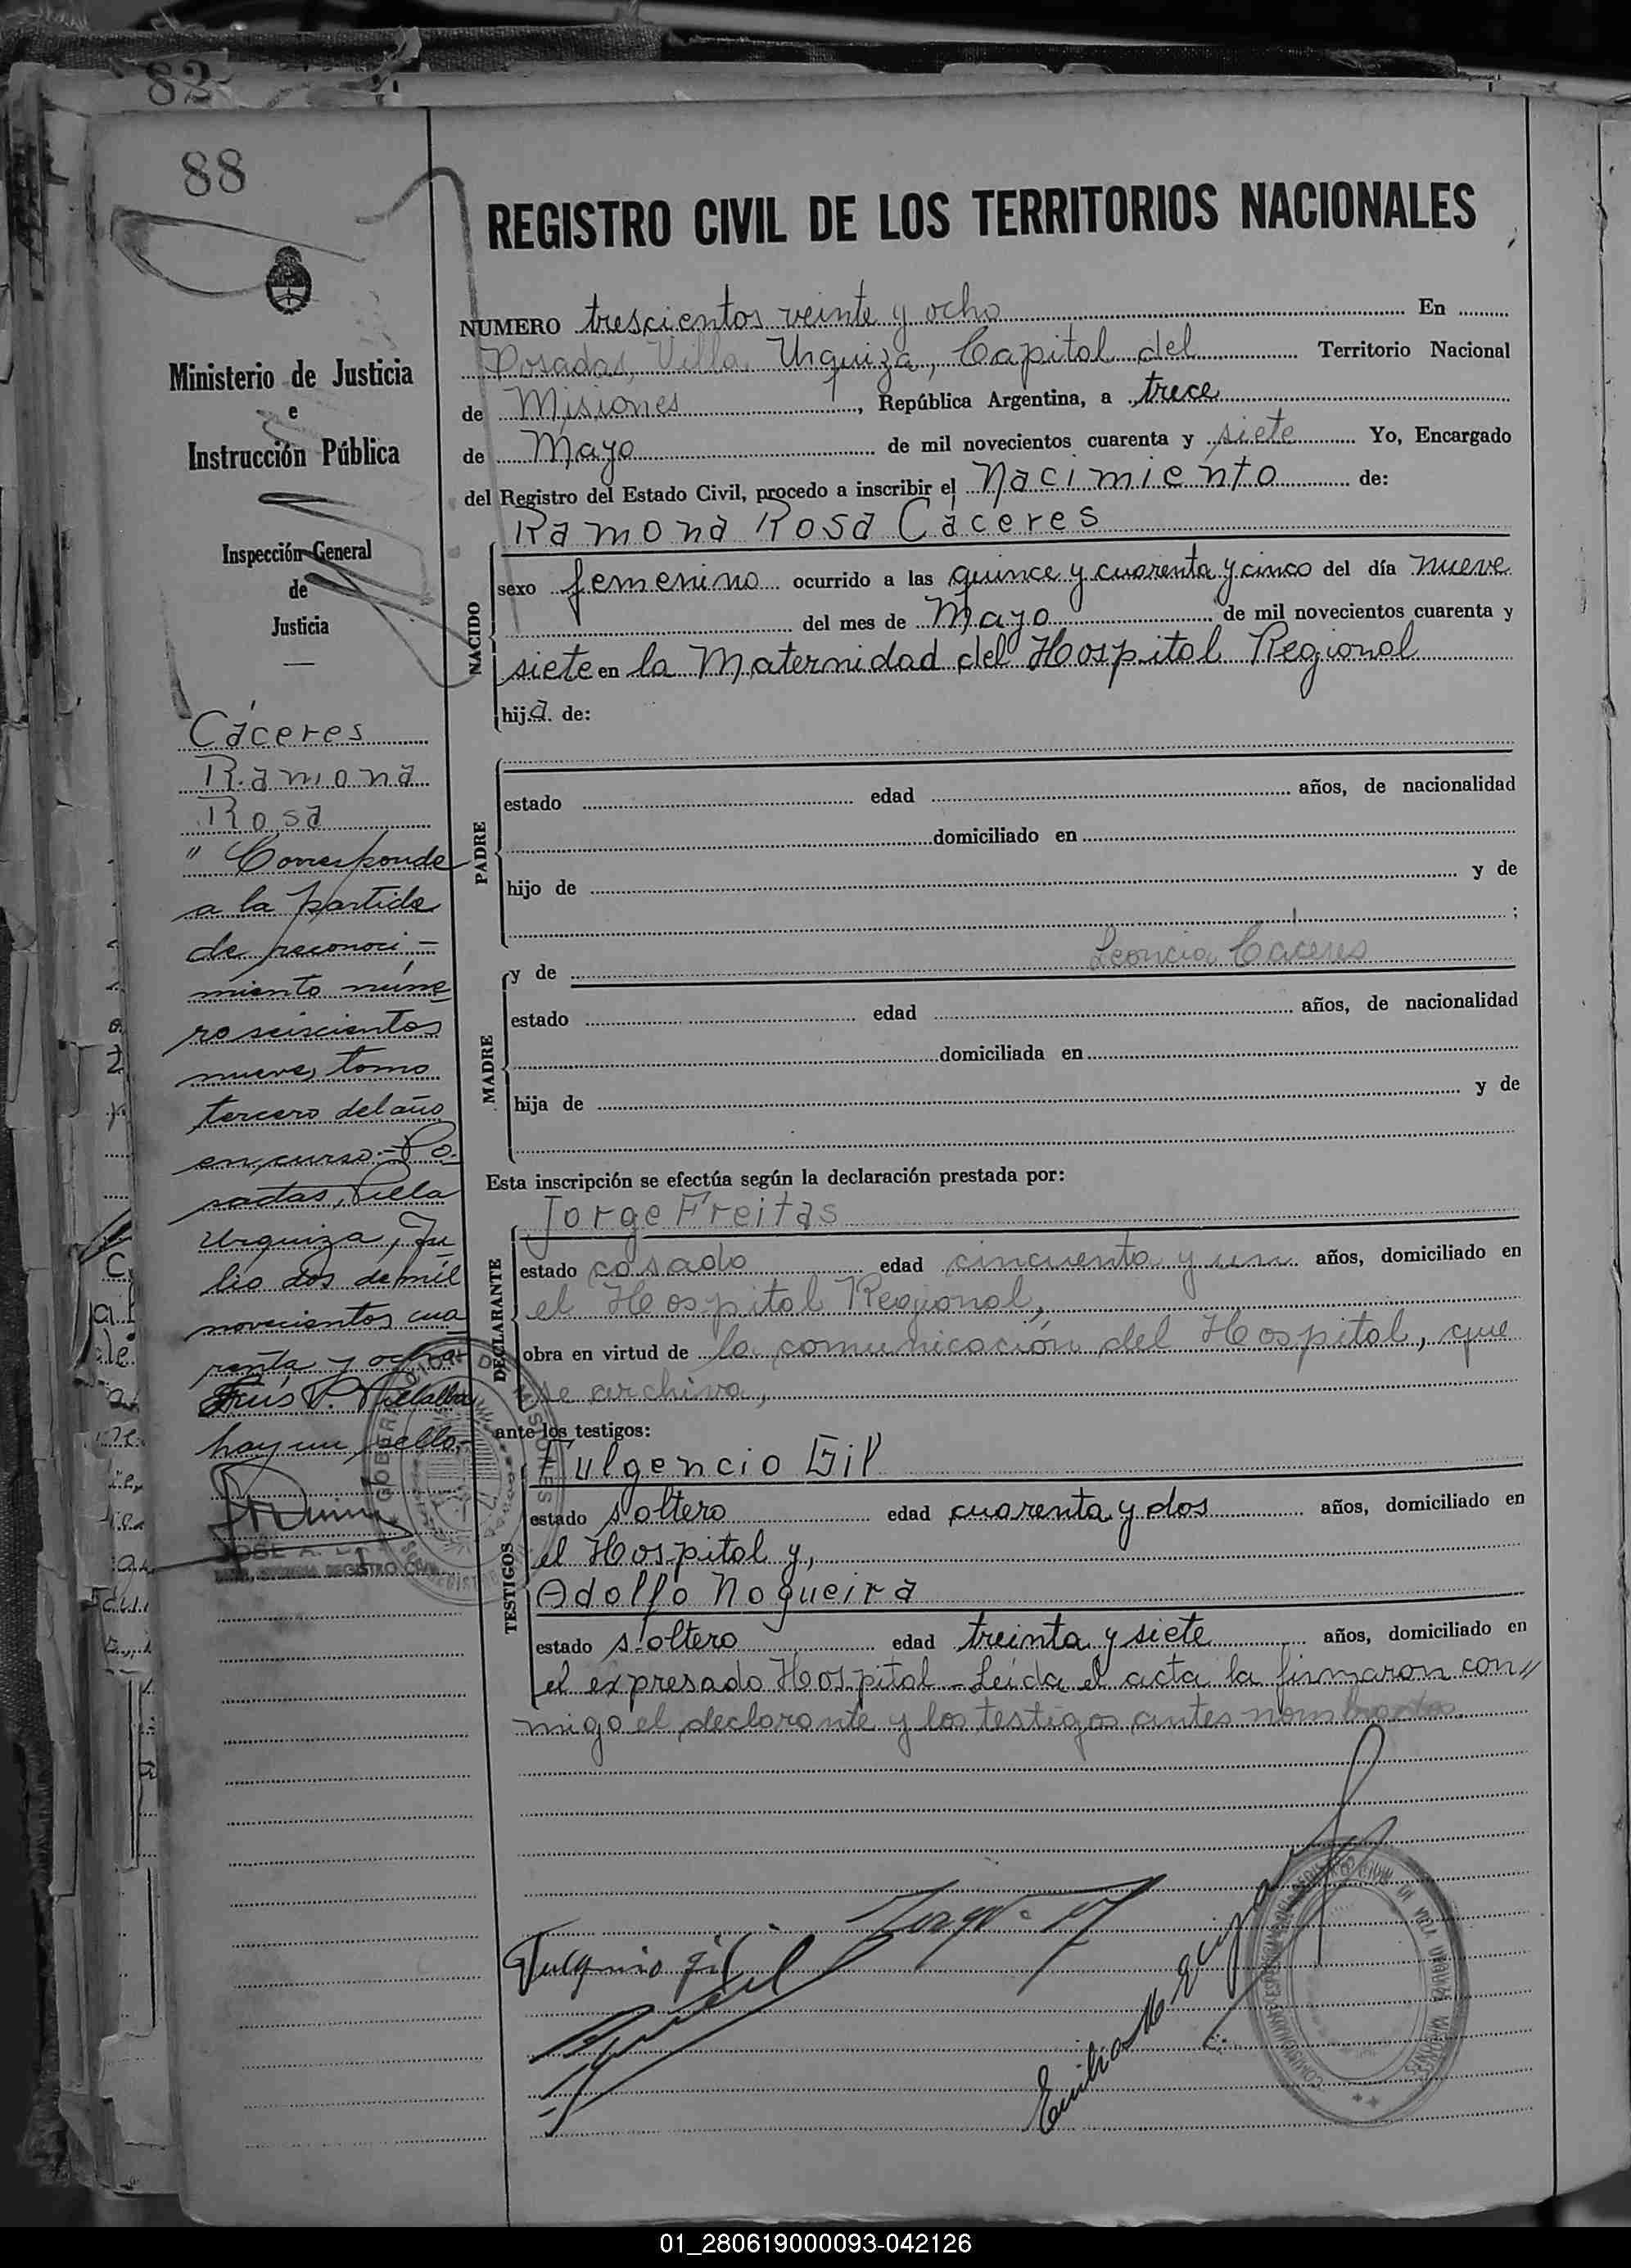 82
88
REGISTRO CIVIL DE LOS TERRITORIOS NACIONALES
Ministerio de Justicia
e
Instrucción Pública
Inspección General
de
Justicia
Cáceres
Ramona
Rosa
" Corresponde
a la partida
de reconoci-
miento núme
ro seiscientos
nueve, tomo
tercero del año
en curso.- Po-
sadas, Villa
Urquiza, Ju
lio dos de mil
novecientos cua
renta y ocho.-
Luis P. Villalba
hay un sello.-
NUMERO trescientos veinte y ocho En
Posadas, Villa Urquiza, Capital del Territorio Nacional
de Misiones, República Argentina, a trece
de Mayo de mil novecientos cuarenta y siete Yo, Encargado
del Registro del Estado Civil, procedo a inscribir el Nacimiento de:
Ramona Rosa Cáceres
NACIDO
sexo femenino ocurrido a las quince y cuarenta y cinco del día nueve
del mes de Mayo de mil novecientos cuarenta y
siete en la Maternidad del Hospital Regional
hija de:
PADRE
estado edad años, de nacionalidad
domiciliado en
hijo de y de
;
MADRE
y de Leoncia Cáceres
estado edad años, de nacionalidad
domiciliada en
hija de y de
Esta inscripción se efectúa según la declaración prestada por:
DECLARANTE
Jorge Freitas
estado casado edad cincuenta y un años, domiciliado en
el Hospital Regional,
obra en virtud de la comunicación del Hospital, que
se archiva,
ante los testigos:
TESTIGOS
Fulgencio Gil
estado soltero edad cuarenta y dos años, domiciliado en
el Hospital y,
Adolfo Nogueira
estado soltero edad treinta y siete años, domiciliado en
el expresado Hospital - Leída el acta la firmaron con//
migo el declarante y los testigos antes nombrados.
Fulgencio Gil
01_280619000093-042126